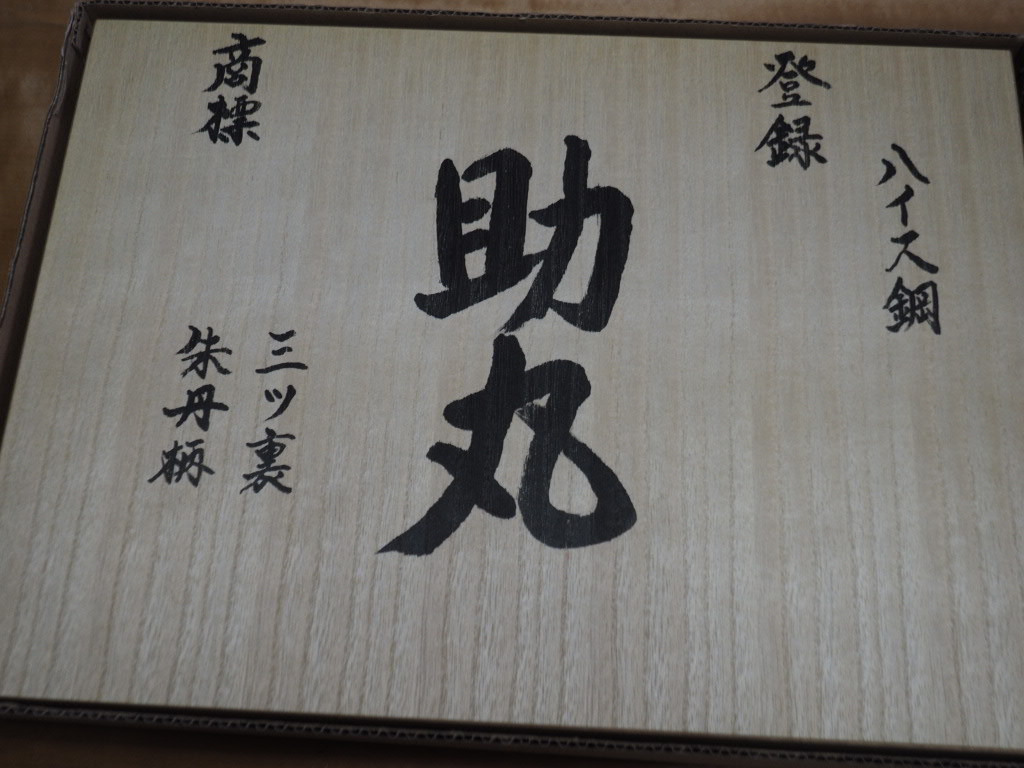 ハイス鋼
登録
助丸
商標
三ツ裏
朱丹柄